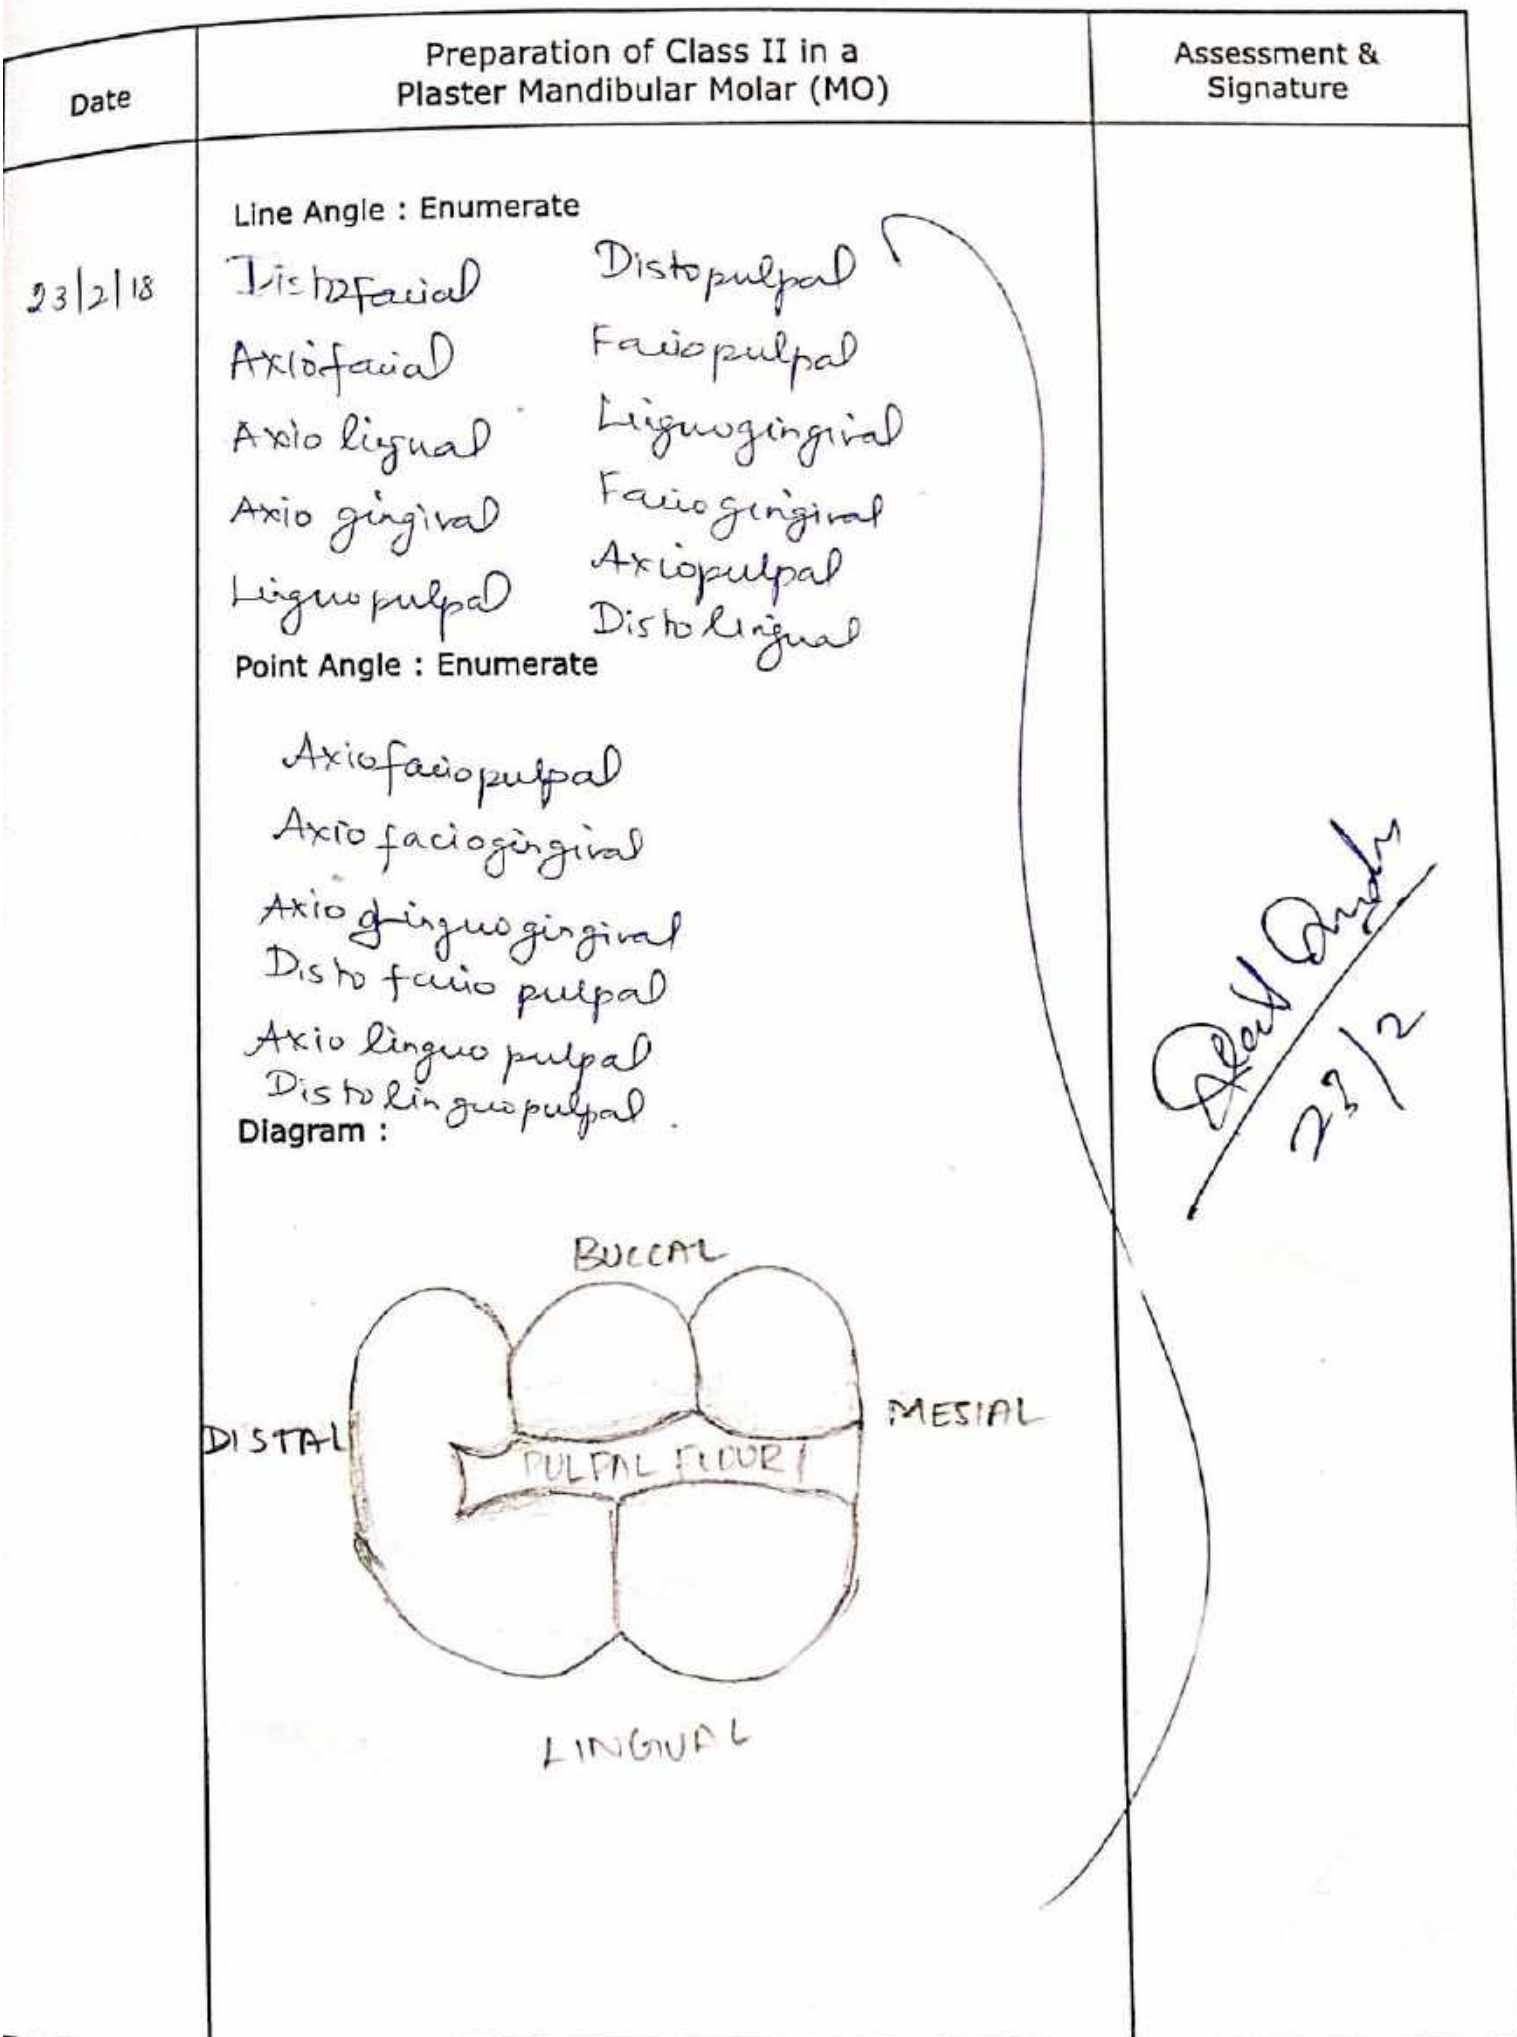 Date
Preparation of Class II in a
Plaster Mandibular Molar (MO)
Assessment &
Signature
23/2/18
Line Angle : Enumerate
Distofacial Distopulpal
Axiofacial Faciopulpal
Axio lingual Linguogingival
Axio gingival Faciogingival
Linguopulpal Axiopulpal
Distolingual
Point Angle : Enumerate
Axiofaciopulpal
Axio faciogingival
Axio linguogingival
Disto facio pulpal
Axio linguo pulpal
Disto linguopulpal.
Diagram :
BUCCAL
DISTAL
MESIAL
PULPAL FLOUR
LINGUAL
23/2